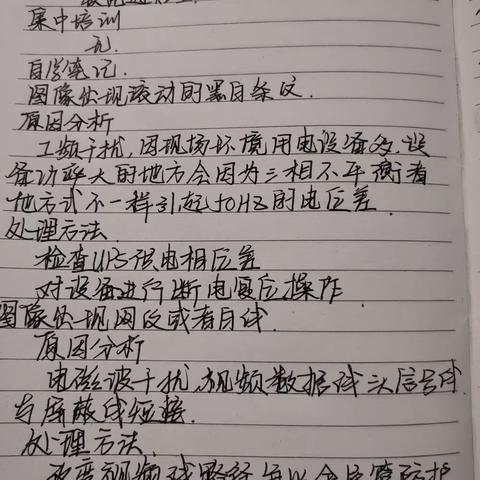 集中培训
无.
自学笔记.
图像出现滚动的黑白条纹.
原因分析
工频干扰,因现场环境用电设备多,设
备功率大的地方会因为三相不平衡者
地方式不一样引起50HZ的电位差
处理方法.
检查UPS供电相位差
对设备进行断电复位操作
图像出现网纹或者白线.
原因分析
电磁波干扰,视频数据线头信号线
与屏蔽线短接.
处理方法.
改变视频线路径与以金属管防护